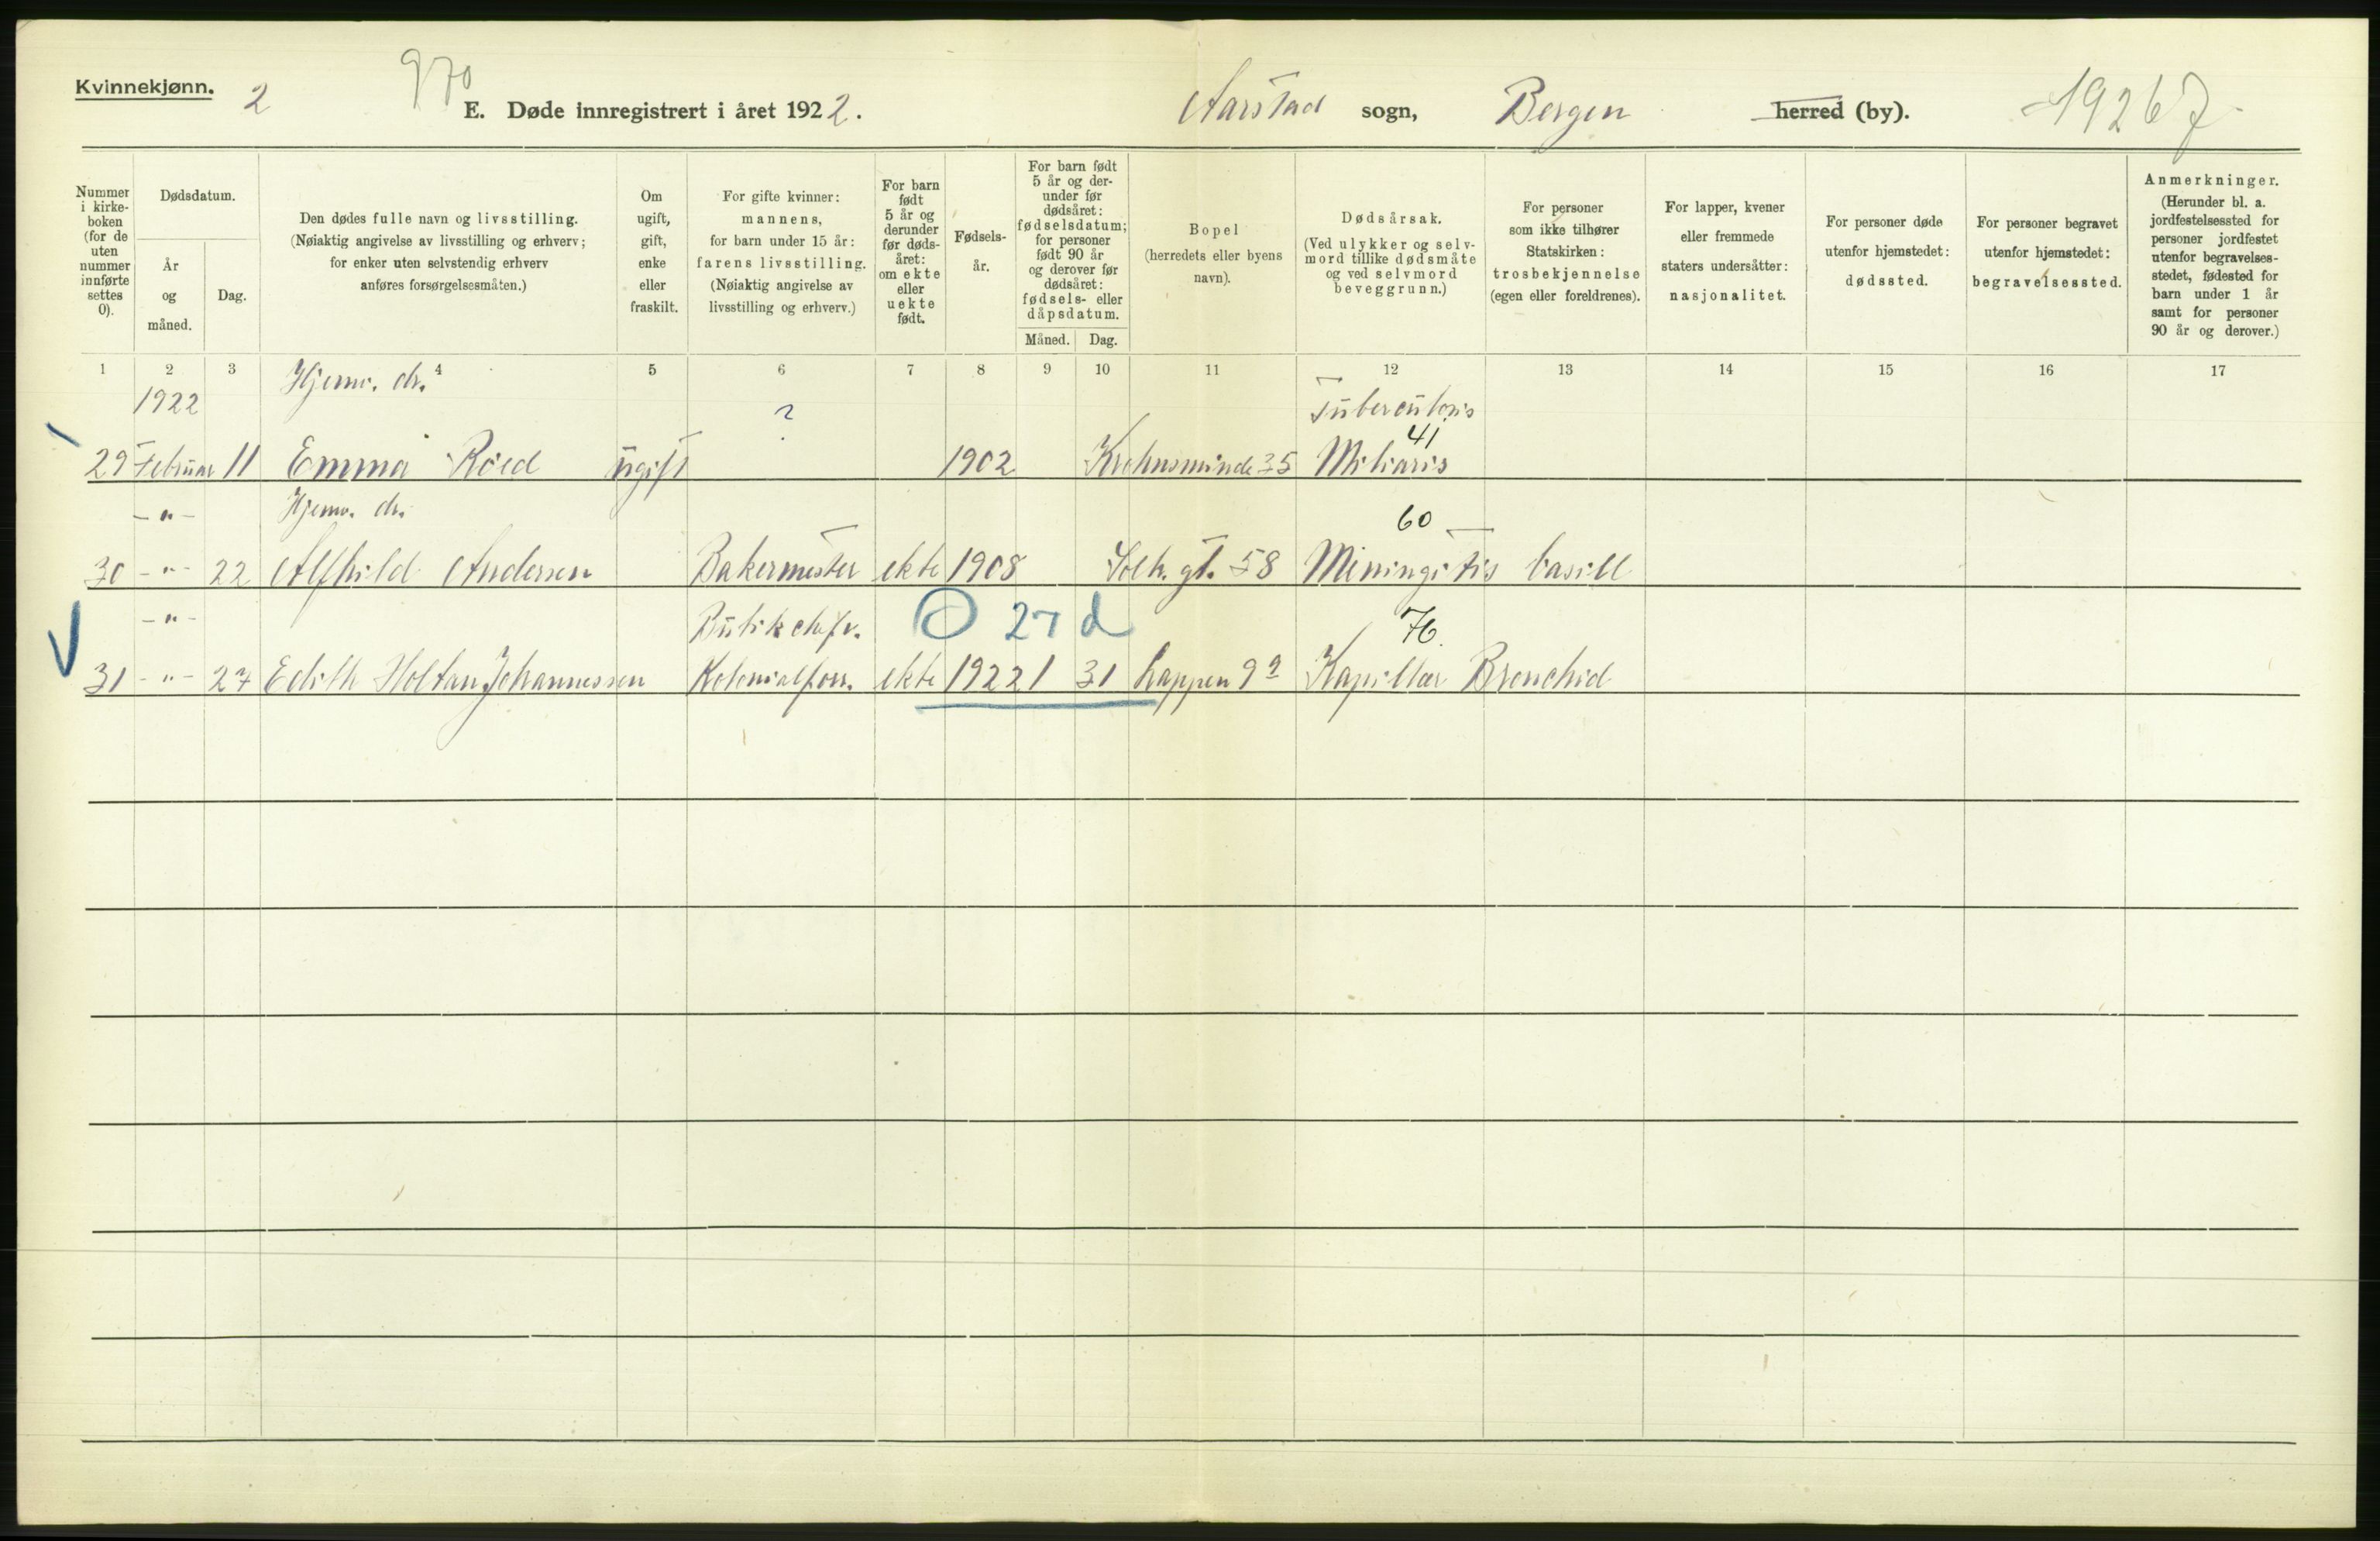 Kvinnekjønn. 2
970
E. Døde innregistrert i året 1922.
Aarstad sogn, Bergen herred (by).
19267
Nummer i kirkeboken (for de uten nummer innførte settes 0).
Dødsdatum.
År og måned.
Dag.
Den dødes fulle navn og livsstilling.
(Nøiaktig angivelse av livsstilling og erhverv;
for enker uten selvstendig erhverv
anføres forsørgelsesmåten.)
Om
ugift,
gift,
enke
eller
fraskilt.
For gifte kvinner:
mannens,
for barn under 15 år:
farens livsstilling.
(Nøiaktig angivelse av
livsstilling og erhverv.)
For barn
født
5 år og
derunder
før døds-
året:
om ekte
eller
uekte
født.
Fødsels-
år.
For barn født
5 år og der-
under før
dødsåret:
fødselsdatum;
for personer
født 90 år
og derover før
dødsåret:
fødsels- eller
dåpsdatum.
Måned. Dag.
Bopel
(herredets eller byens
navn).
Dødsårsak.
(Ved ulykker og selv-
mord tillike dødsmåte
og ved selvmord
beveggrunn.)
For personer
som ikke tilhører
Statskirken:
trosbekjennelse
(egen eller foreldrenes).
For lapper, kvener
eller fremmede
staters undersåtter:
nasjonalitet.
For personer døde
utenfor hjemstedet:
dødssted.
For personer begravet
utenfor hjemstedet:
begravelsessted.
Anmerkninger.
(Herunder bl. a.
jordfestelsessted for
personer jordfestet
utenfor begravelses-
stedet, fødested for
barn under 1 år
samt for personer
90 år og derover.)
1 2 3 4 5 6 7 8 9 10 11 12 13 14 15 16 17
1922 Hjemv. dr. ? Tuberculosis
41
29 Februar 11 Emma Röed ugift 1902 Krohnsminde 35 Miliaris
-"- Hjemv. dr. 60
30 -"- 22 Alfhild Andersen Bakermester ekte 1908 Solh. gt. 58 Miningitis basill
-"- Butikchef v. 0 27 d 76
31 -"- 27 Edith Holtan Johannessen Kolonialforr. ekte 1922 1 31 Lappen 9 a Kapillær Bronchid